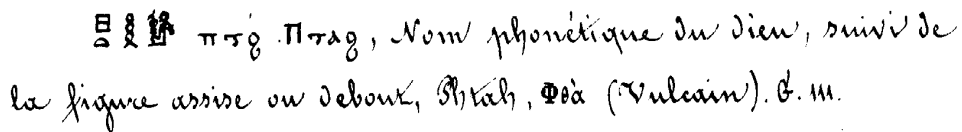 𓊪𓏏𓎛𓁰 ⲡⲧϩ. Ⲡⲧⲁϩ, Nom phonétique du dieu, suivi de
la figure assise ou debout, Phtah, Φθὰ (Vulcain). G. 111.